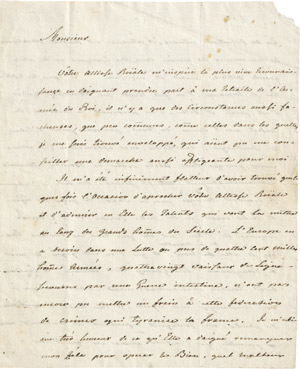 Monsieur
Votre Altesse Roïale m'inspire la plus vive reconnais-
sance en daignant prendre part à ma retraite de l'Ar-
mée du Roi, il n'y a que des circonstances aussi fa-
cheuses, que peu communes, comme celles dans les quelles
je me suis trouvé enveloppé, qui aïent pu me con-
seiller une demarche aussi affligeante pour moi
Il m'a été infiniment flatteur d'avoir trouvé quel-
que fois l'occasion d'aprocher Votre Altesse Roïale
et d'admirer en Elle les Talents qui vont la mettre
au rang des grands hommes du Siecle. L'Europe en
a besoin dans une Lutte ou plus de quatre cent mille
hommes armés, quatrevingt vaisseaux de Ligne
par une Guerre intestine, n'ont pas
encor pu mettre un frein à cette federation
de crimes qui tyranise la france. Je m'estime
tres heureux de ce qu'Elle a daigné remarquer
mon zele pour operer le Bien, quel malheur